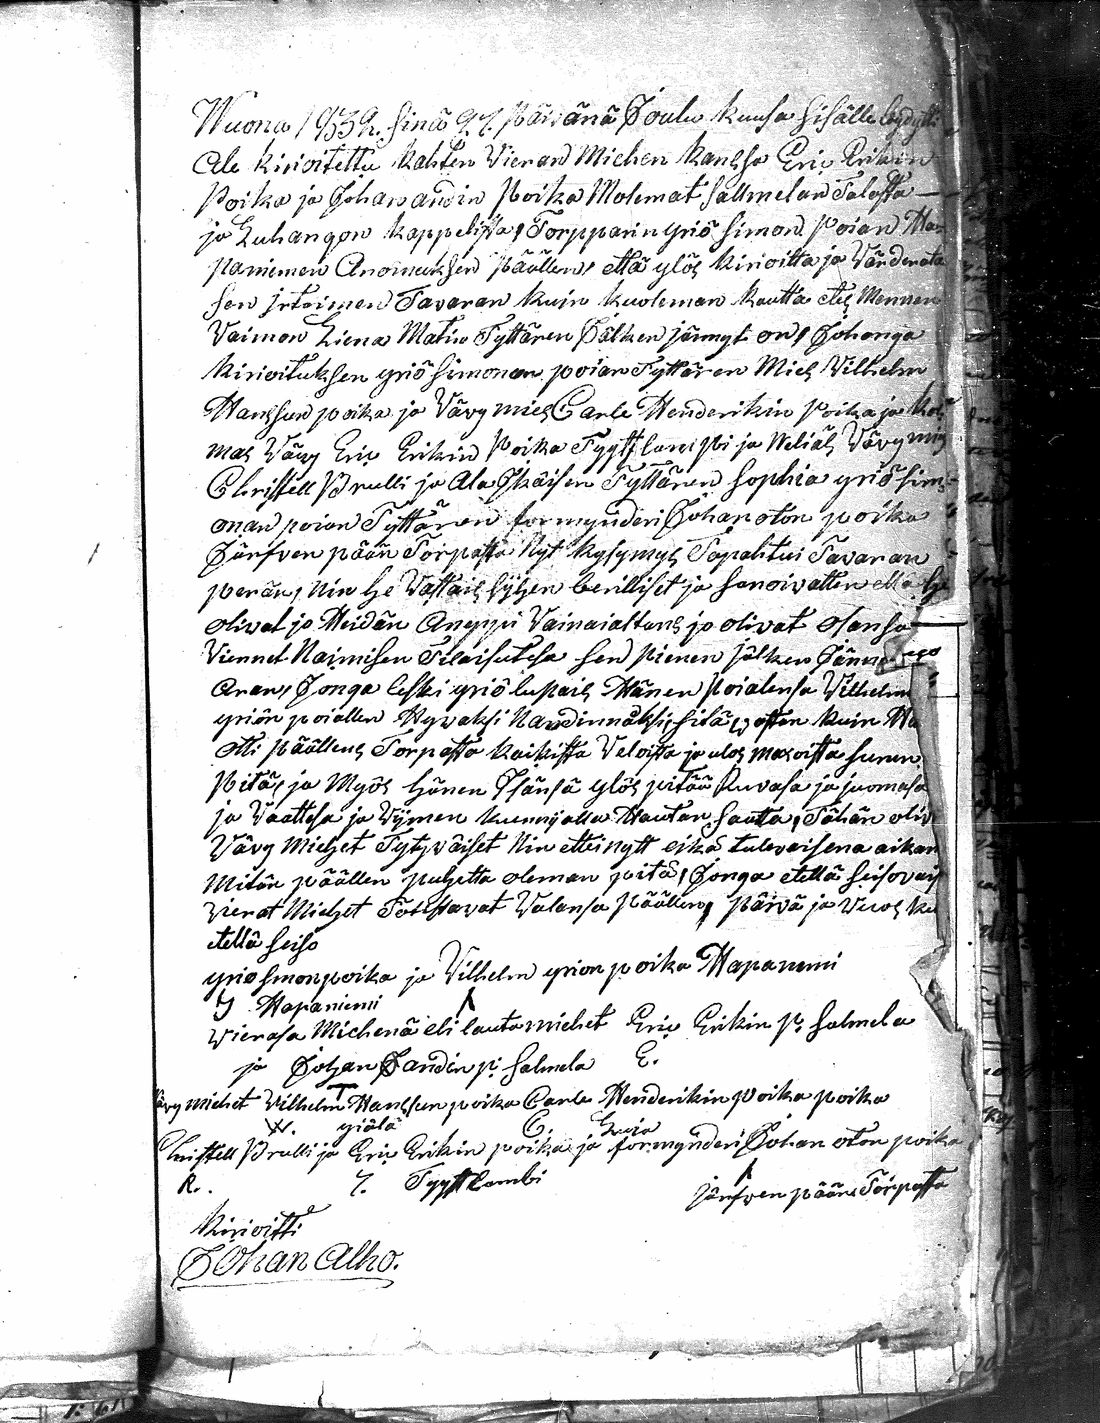 Wuona 1839 sinä 27 päivänä Joulu kuusa sisälle löydytti
Ale kirioitettu kahten Vieran Miehen kanssa Eric Erikin
Poika ja Johan andin Poika Molemat Sallmelan Talosta —
ja Luhangon kappelista, Torpparin yriö Simon Poian Haa
paniemen Anomuksen päällen, että ylös kirioitta ja Värderata
sen irtoimen Tavaran kuin kuoleman kautta eteş Mennen
Vaimon Liena Matin Tyttären Jälken jännyt on, Johonga
kirioituksen yriö Simonon poian Tyttären Mies Vilhelm
Hanssun poika ja Vävy mies Carle Henderikin Poika ja kol
mas Vävy Eric Erikin Poika Tyystlammi ja Neliäs Vävy mis
Christell Brulli ja Ala Jkäisen Tyttären Sophia yriö Sim
onan poian Tyttären formynderi Johan oton poika
Järfven pään Torpasta Nyt kysymys Tapahtui Tavaran
perän, Nin he Vastais syhen Eerilliset ja sanoivatten että he
olivat ja Heidän Anoppi Vainaiattans jo olivat Osansa
Viennet Naimisen Tilaisutesa sen pienen jälken Jänne
Aran, Jonga leski yriö lupais Hänen Poialensa Vilhelm
yriön poiallen Hyvaksi Nautinnäksi, sitä vasten kuin Hä
otti päällens Torpasta kaikista Veloista ja ulos maxoista surun
Pitä, ja Myös hänen Jsänsä ylös pitää Ruvasa ja juomasa
ja Vaattesa ja Vijmen kunnialla Hautan Sautta, Tähän oliv
Vävy Miehet Tytyväiset Nin ettei nytt eikä tulevaisena aikan
Mitän päällen puhetta oleman pitä, Jonga etellä seisovai
vierat Miehet Totistavat Valansa päällen, päivä ja Vuos ku
etellä seiso
yriö simon poika ja Vilhelm yrion poika Hapaniemi
Y Hapaniemi
Vierasa Miehenä eli lautamiehet Eric Erikin p. Salmela
ja Johan Jandin p. Salmela E.
Vävy miehet Vilhelm Hanssun poika Carle Henderikin poika poika
W. C.
Christell Brulli ja Eric Erikin poika ja formynderi Johan oton poika
R. 7. Tyystlambi Järfven pään Torpasta
kirioitti
Johan Alho.